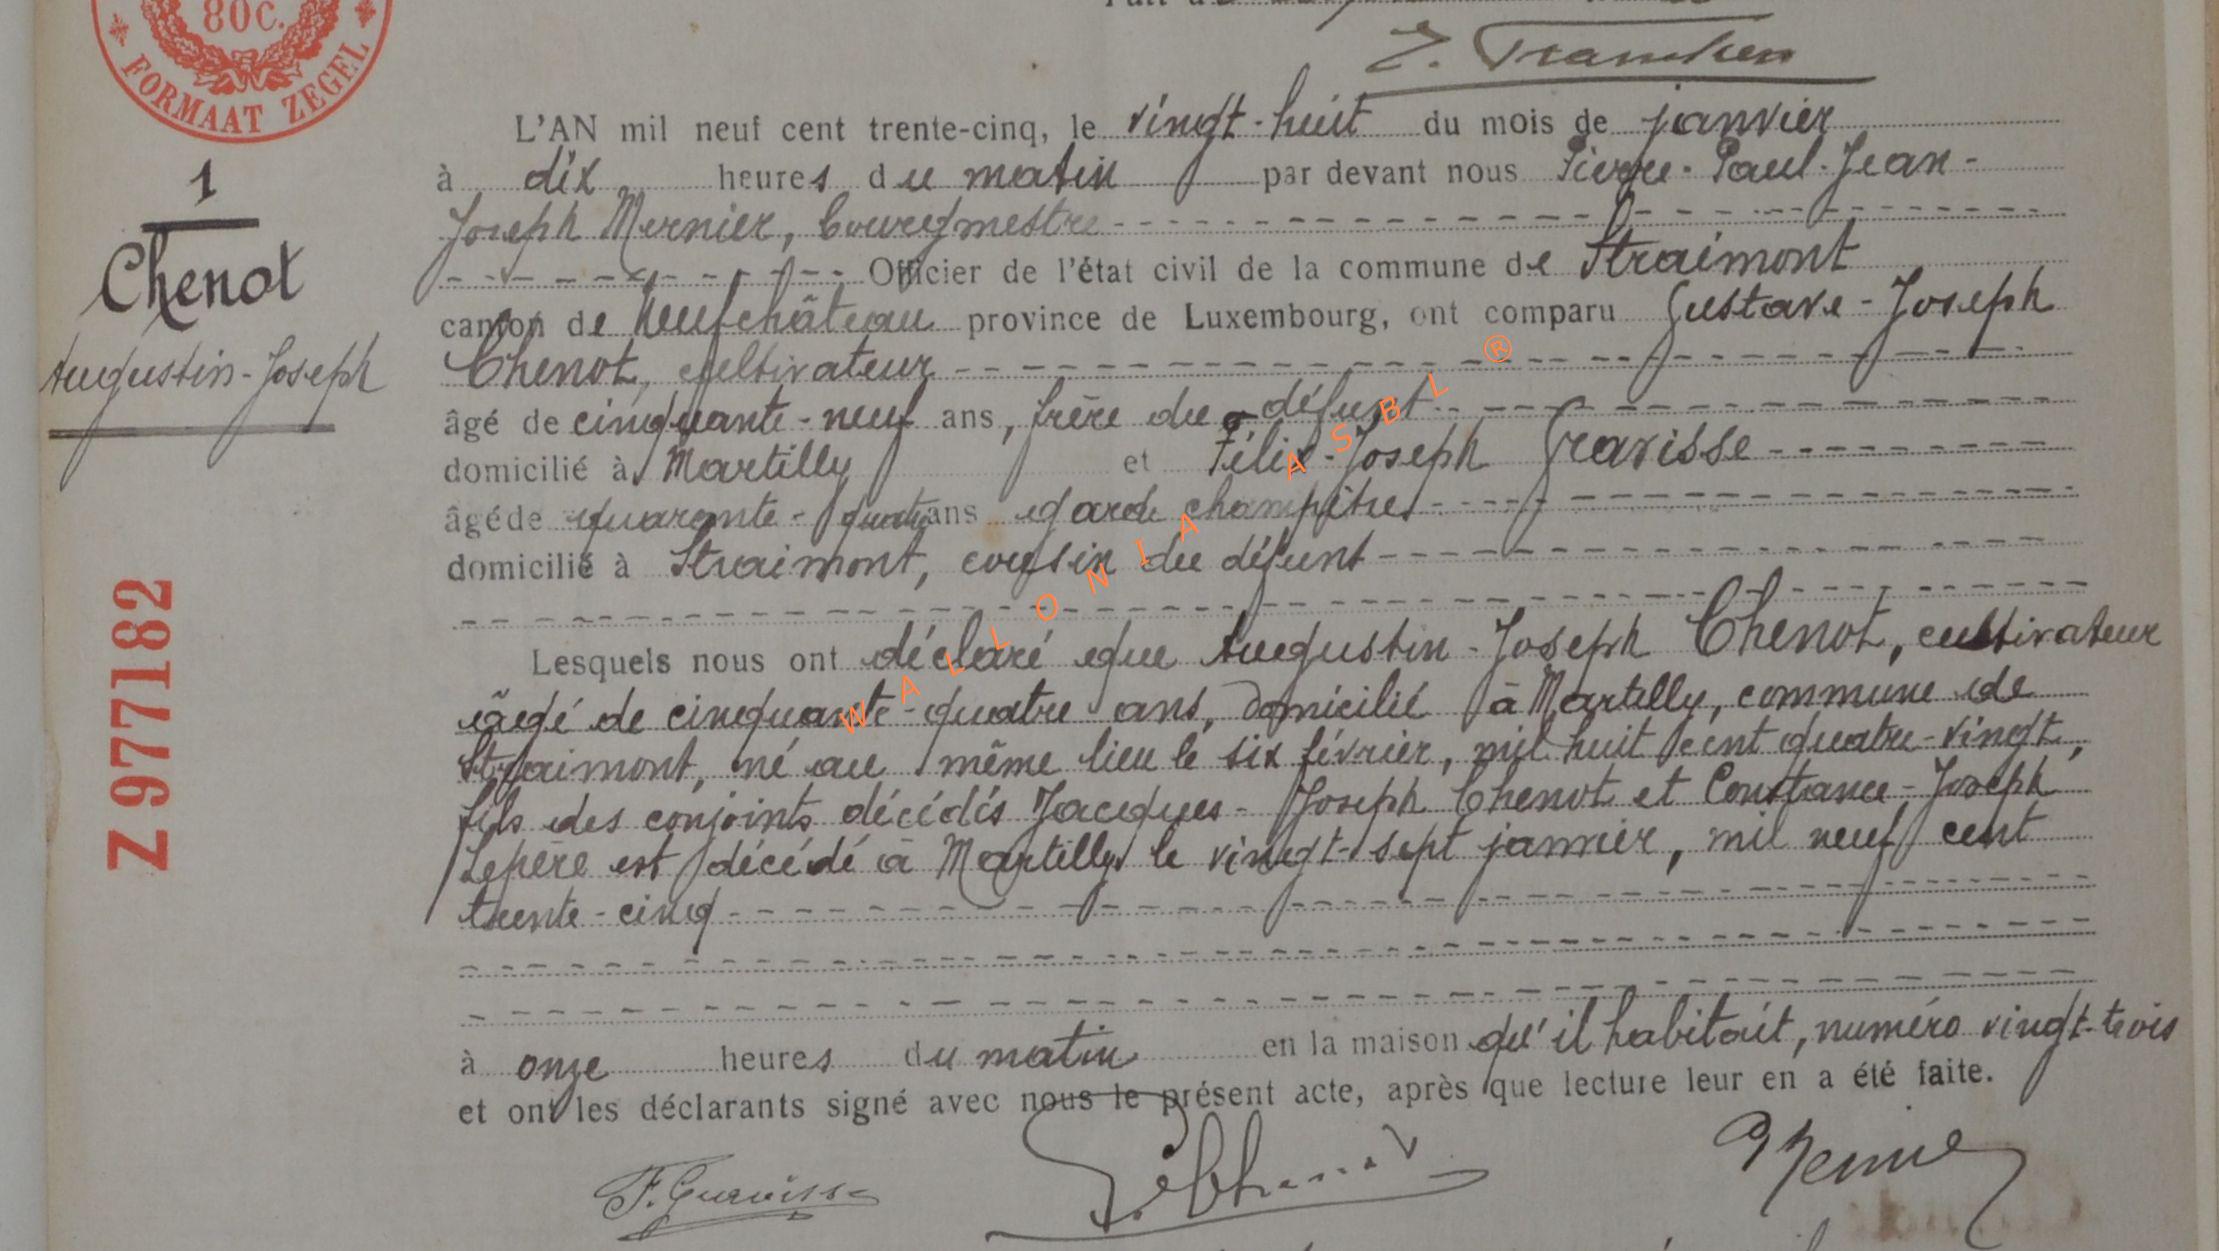 80C.
FORMAAT ZEGEL
J. Francken
L'AN mil neuf cent trente-cinq, le vingt-huit du mois de janvier
à dix heures du matin par devant nous Pierre-Paul-Jean-
Joseph Mernier, bourgmestre
Officier de l'état civil de la commune de Straimont
canton de Neufchâteau province de Luxembourg, ont comparu Gustave-Joseph
Chenot, cultivateur
âgé de cinquante-neuf ans, frère du défunt
domicilié à Martilly et Félix-Joseph Gravisse
âgé de quarante-quatre ans garde champêtre
domicilié à Straimont, cousin du défunt
Lesquels nous ont déclaré que Augustin-Joseph Chenot, cultivateur
âgé de cinquante-quatre ans, domicilié à Martilly, commune de
Straimont, né au même lieu le six février, mil huit cent quatre-vingt,
fils des conjoints décédés Jacques-Joseph Chenot et Constance-Joseph
Lepère est décédé à Martilly le vingt-sept janvier, mil neuf cent
trente-cinq
à onze heures du matin en la maison qu'il habitait, numéro vingt-trois
et ont les déclarants signé avec nous le présent acte, après que lecture leur en a été faite.
1
Chenot
Augustin-Joseph
Z 977182
WALLONIA ASBL ®